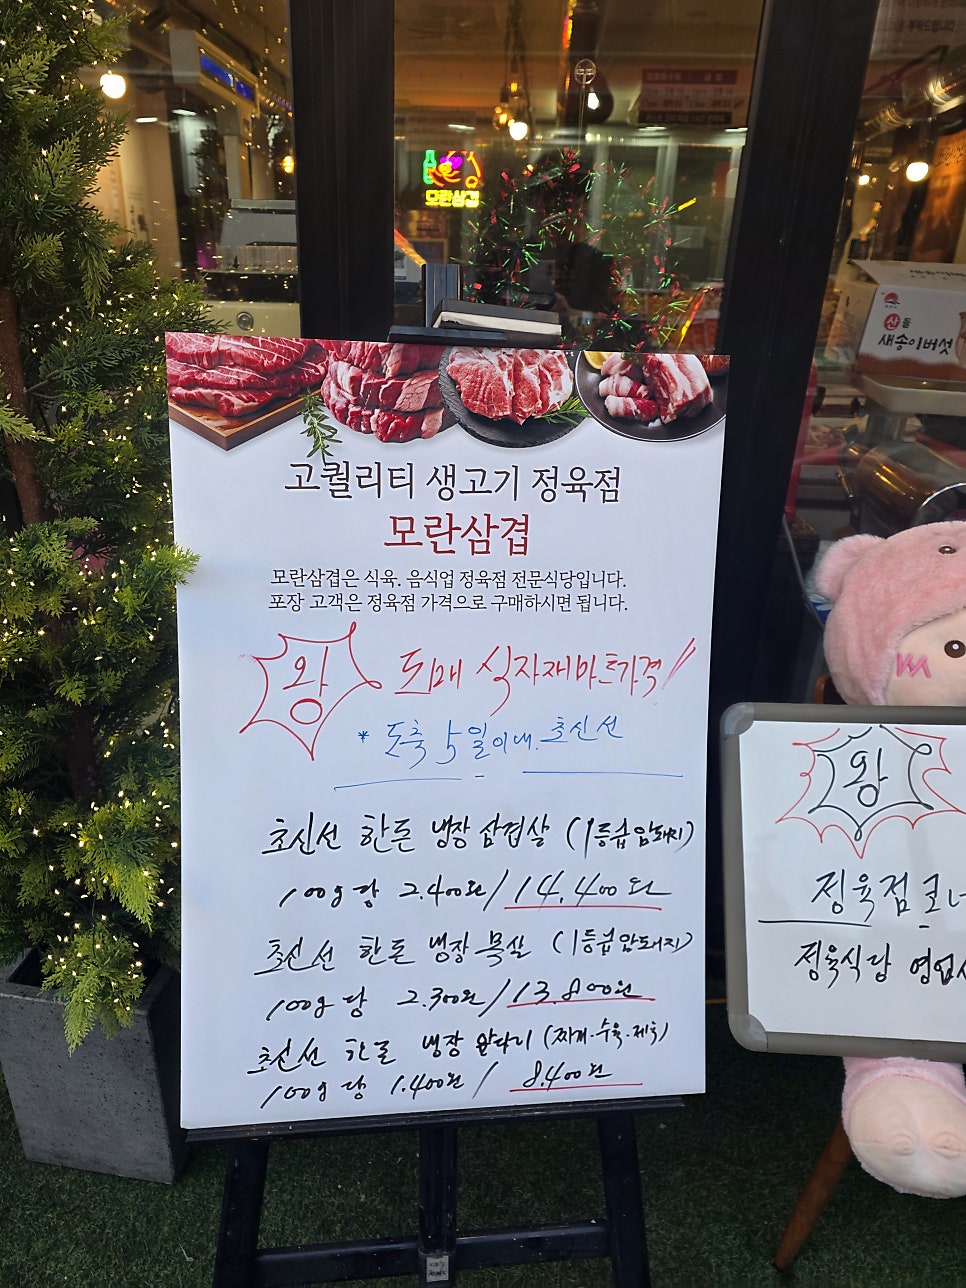 모란삼겹
산들
새송이버섯
고퀄리티 생고기 정육점
모란삼겹
모란삼겹은 식육. 음식업 정육점 전문식당입니다.
포장 고객은 정육점 가격으로 구매하시면 됩니다.
왕 도매 식자재마트가격!!
* 도축 5일이내. 초신선
초신선 한돈 냉장 삼겹살 (1등급 암돼지)
100g당 2.400원/14.400원
초신선 한돈 냉장 목살 (1등급 암돼지)
100g당 2.300원/13.800원
초신선 한돈 냉장 앞다리 (찌개.수육.제육)
100g당 1.400원/ 8.400원
왕
정육점 코너
정육식당 영업시